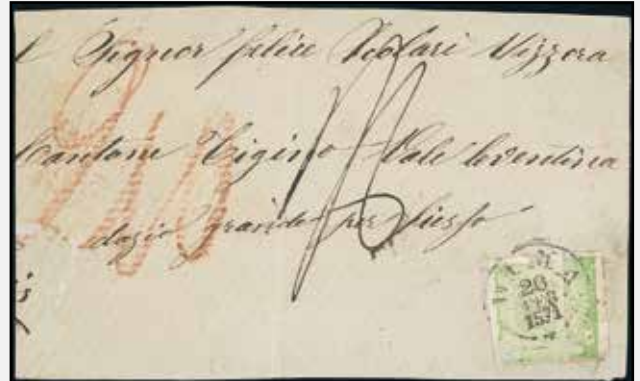 l Signor felice Scolari Vizzora
Cantone Ticino Vale leventina
dazio grande per fiesso
LIMA
26
FEB
1871